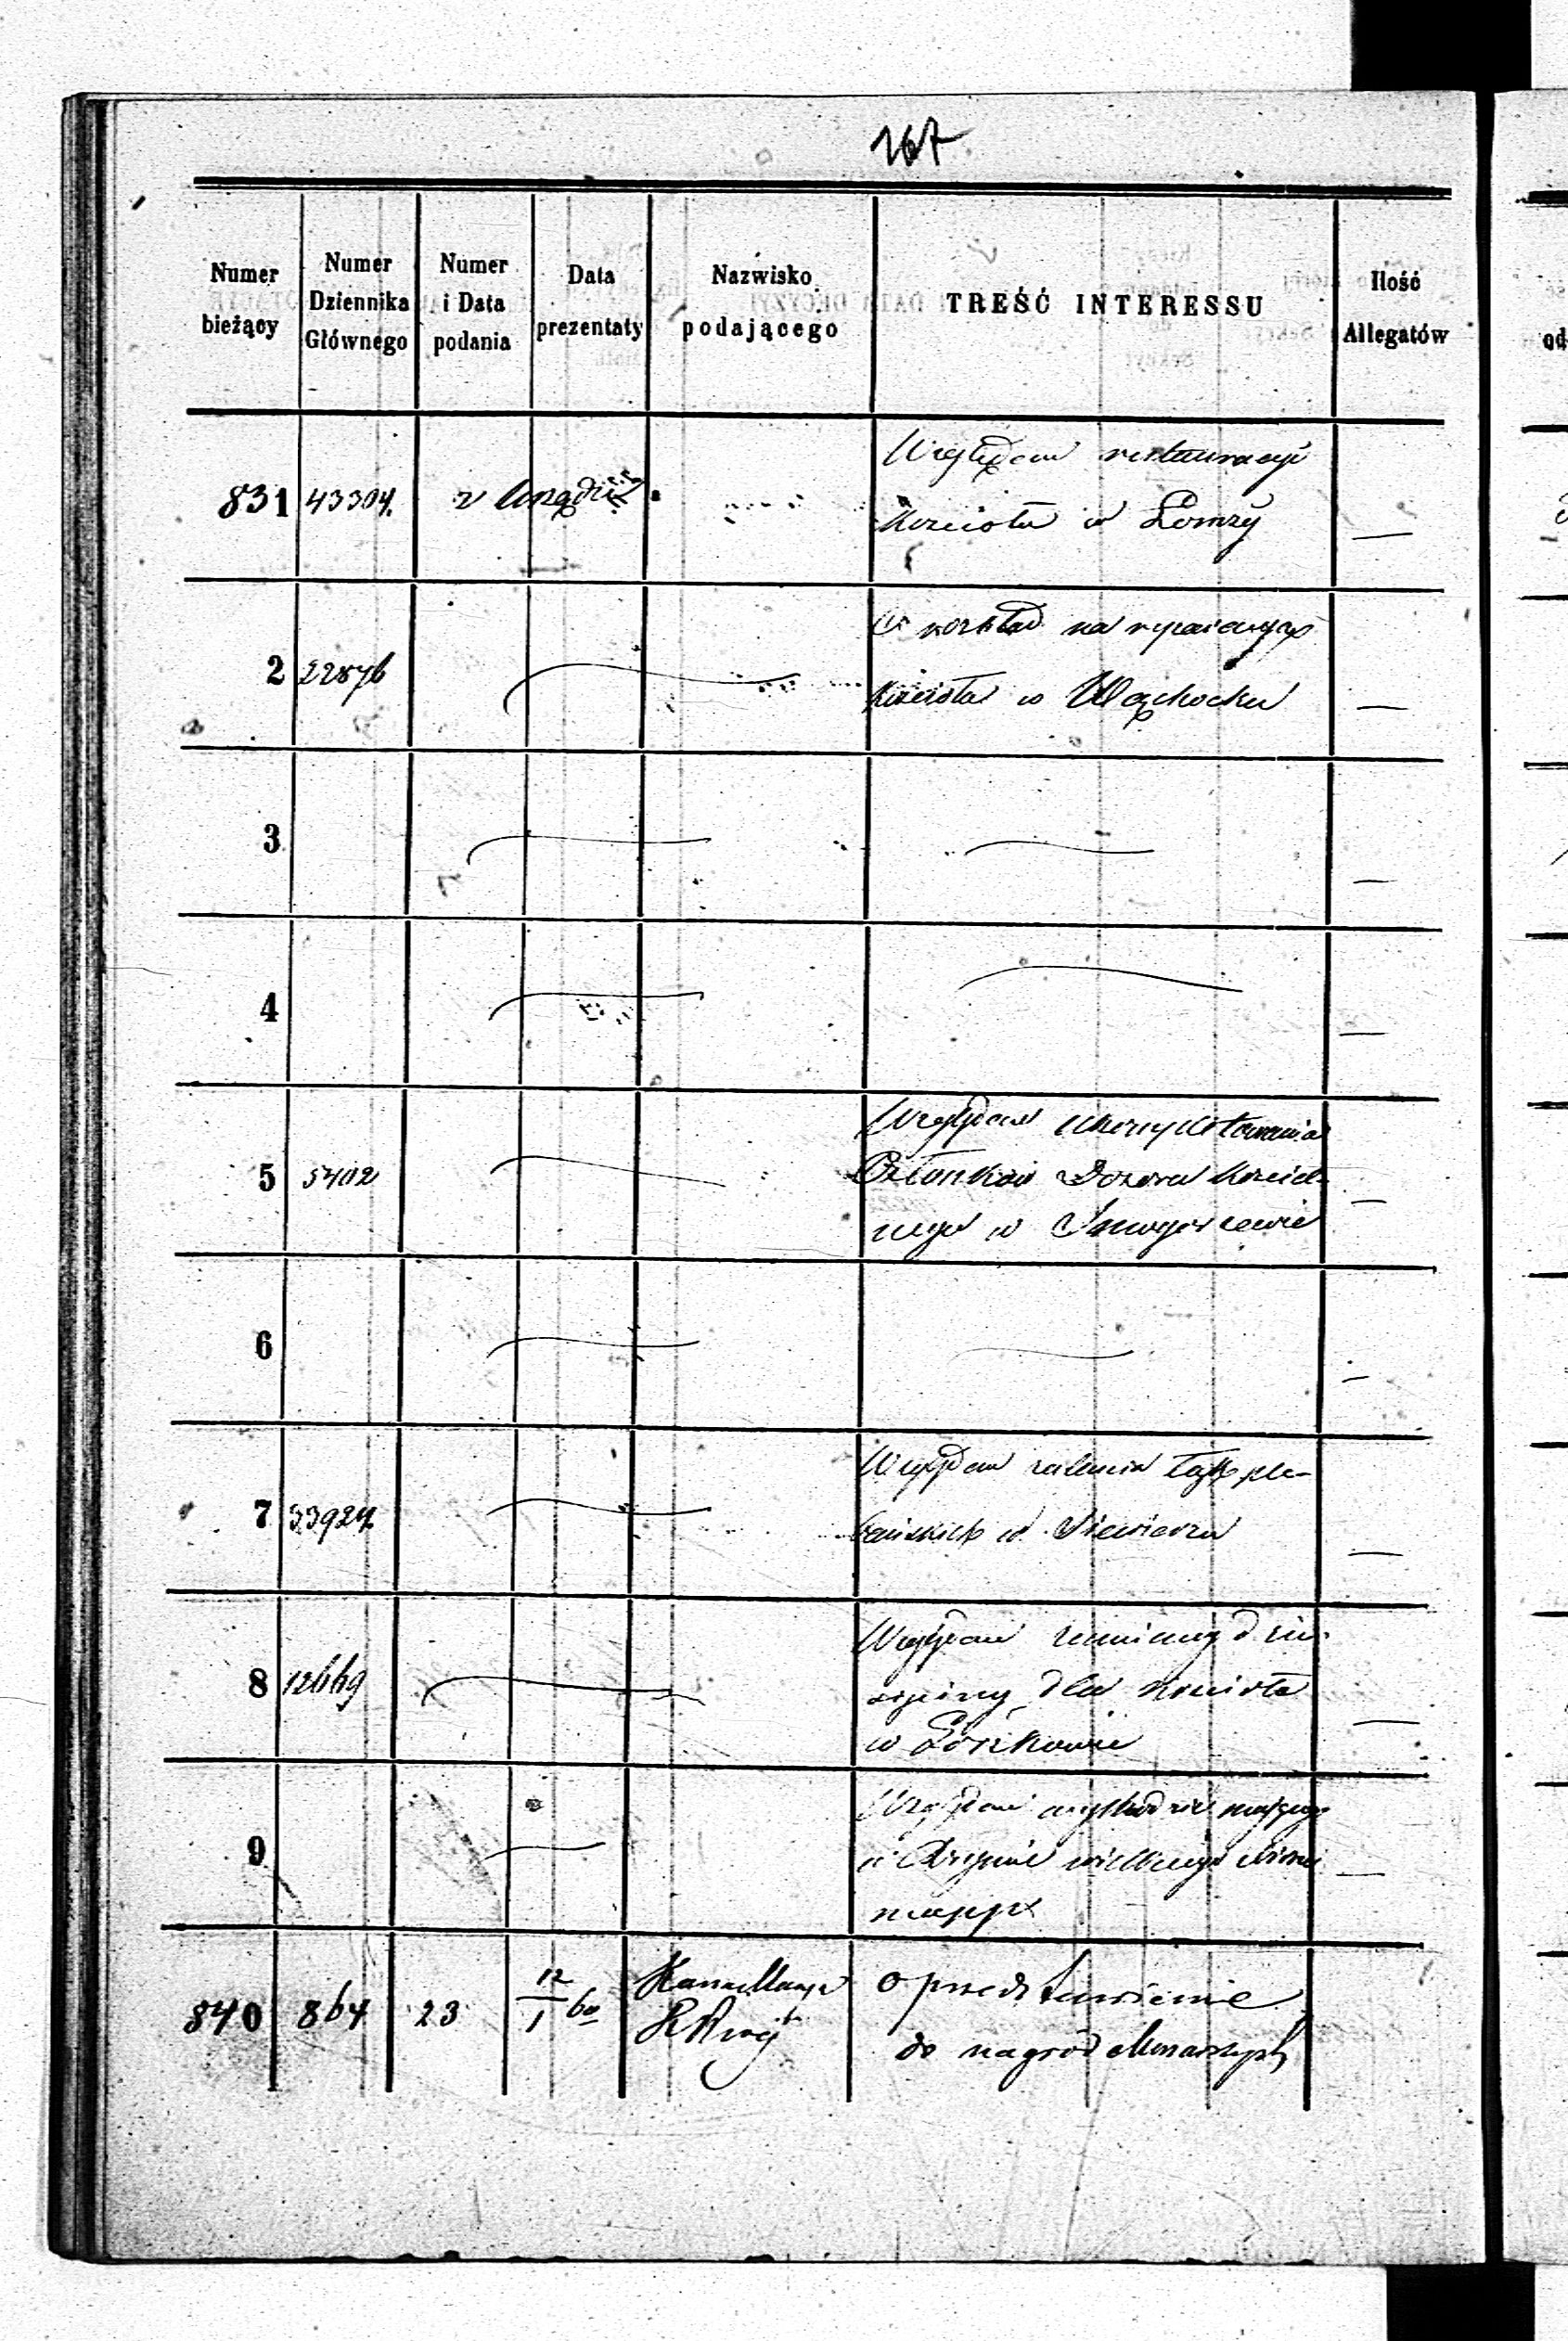 267
Numer bieżący | Numer Dziennika Głównego | Numer i Data podania | Data prezentaty | Nazwisko podającego | TREŚĆ INTERESSU | Ilość Allegatów
831 | 43304. | z Urzędu | Względem restauracyi
kościoła w Łomży | —
2 | 22876 | O rozkład na reparacyą
kościoła w Wąchocku | —
3 | —
4 | —
5 | 5402 | Względem
Członków Dozoru kościel-
nego w | —
6 | —
7 | 33924 | Względem zalania łąk ple-
bańskich w Siewierzu | —
8 | 12669 | Względem zamiany
dla kościoła
w | —
9 | Względem
w
840 | 864 | 23 | 12/1 60 | Kancellarya
| O przedstawienie
do nagród Monarszych